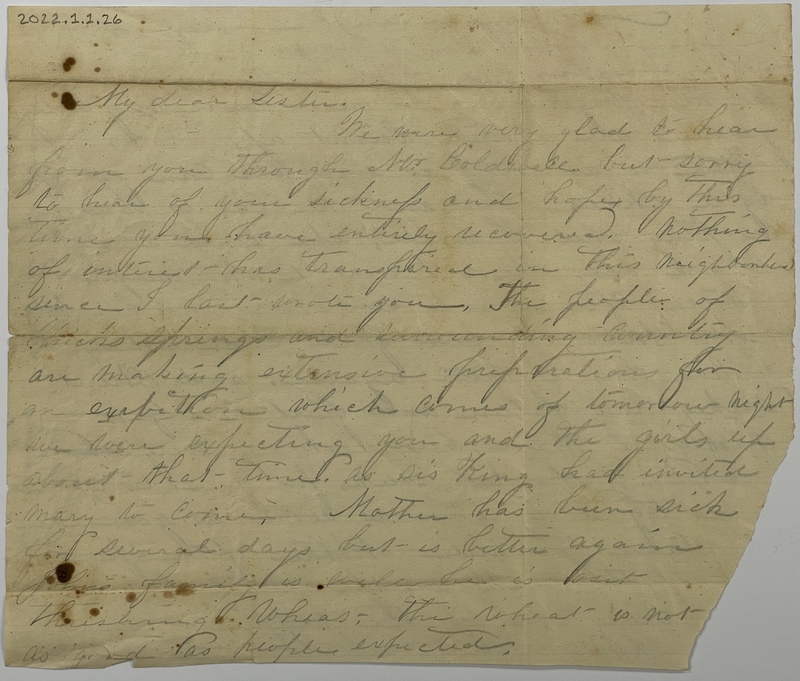 2022.1.1.26
My dear Sister.
We were very glad to hear
from you through Mr. but sorry
to hear of your sickness and hope by this
time you have entirely recovered. Nothing
of interest has transpired in this neighborhood
since I last wrote you. The people of
Chicks Springs and surrounding country
are making extensive preparations for
an which comes of tomorrow night
we were expecting you and the girls up
about that time. as sis King had invited
Mary to come. Mother has been sick
for several days but is better again
John's family is well he is out
threshing Wheat. the wheat is not
as good as people expected.